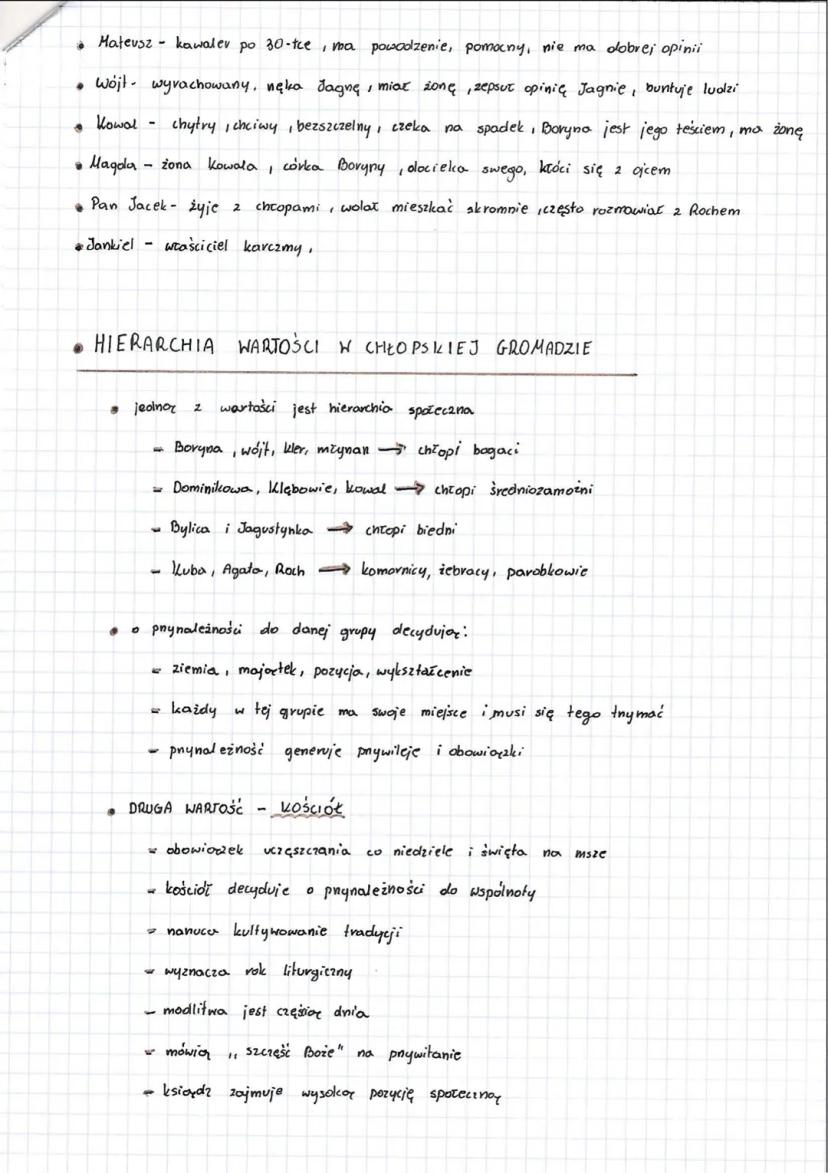 • Mateusz - kawaler po 30-tce, ma powodzenie, pomocny, nie ma dobrej opinii
• Wójt - wyrachowany, nęka Jagnę, miał żonę, zepsuł opinię Jagnie, buntuje ludzi
• Kowal - chytry, chciwy, bezszczelny, czeka na spadek, Boryna jest jego teściem, ma żonę
• Magda - żona kowala, córka Boryny, docieka swego, kłóci się z ojcem
• Pan Jacek - żyje z chłopami, wolał mieszkać skromnie, często rozmawiał z Rochem
• Jankiel - właściciel karczmy,
• HIERARCHIA WARTOŚCI W CHŁOPSKIEJ GROMADZIE
• jedną z wartości jest hierarchia społeczna
- Boryna, wójt, kler, młynarz → chłopi bogaci
- Dominikowa, Kłębowie, kowal → chłopi średniozamożni
- Bylica i Jagustynka → chłopi biedni
- Kuba, Agata, Roch → komornicy, żebracy, parobkowie
• o przynależności do danej grupy decydują:
- ziemia, majątek, pozycja, wykształcenie
- każdy w tej grupie ma swoje miejsce i musi się tego trzymać
- przynależność generuje przywileje i obowiązki
• DRUGA WARTOŚĆ - KOŚCIÓŁ
- obowiązek uczęszczania co niedziele i święta na msze
- kościół decyduje o przynależności do wspólnoty
- narzuca kultywowanie tradycji
- wyznacza rok liturgiczny
- modlitwa jest częścią dnia
- mówią „szczęść Boże" na przywitanie
- ksiądz zajmuje wysoką pozycję społeczną